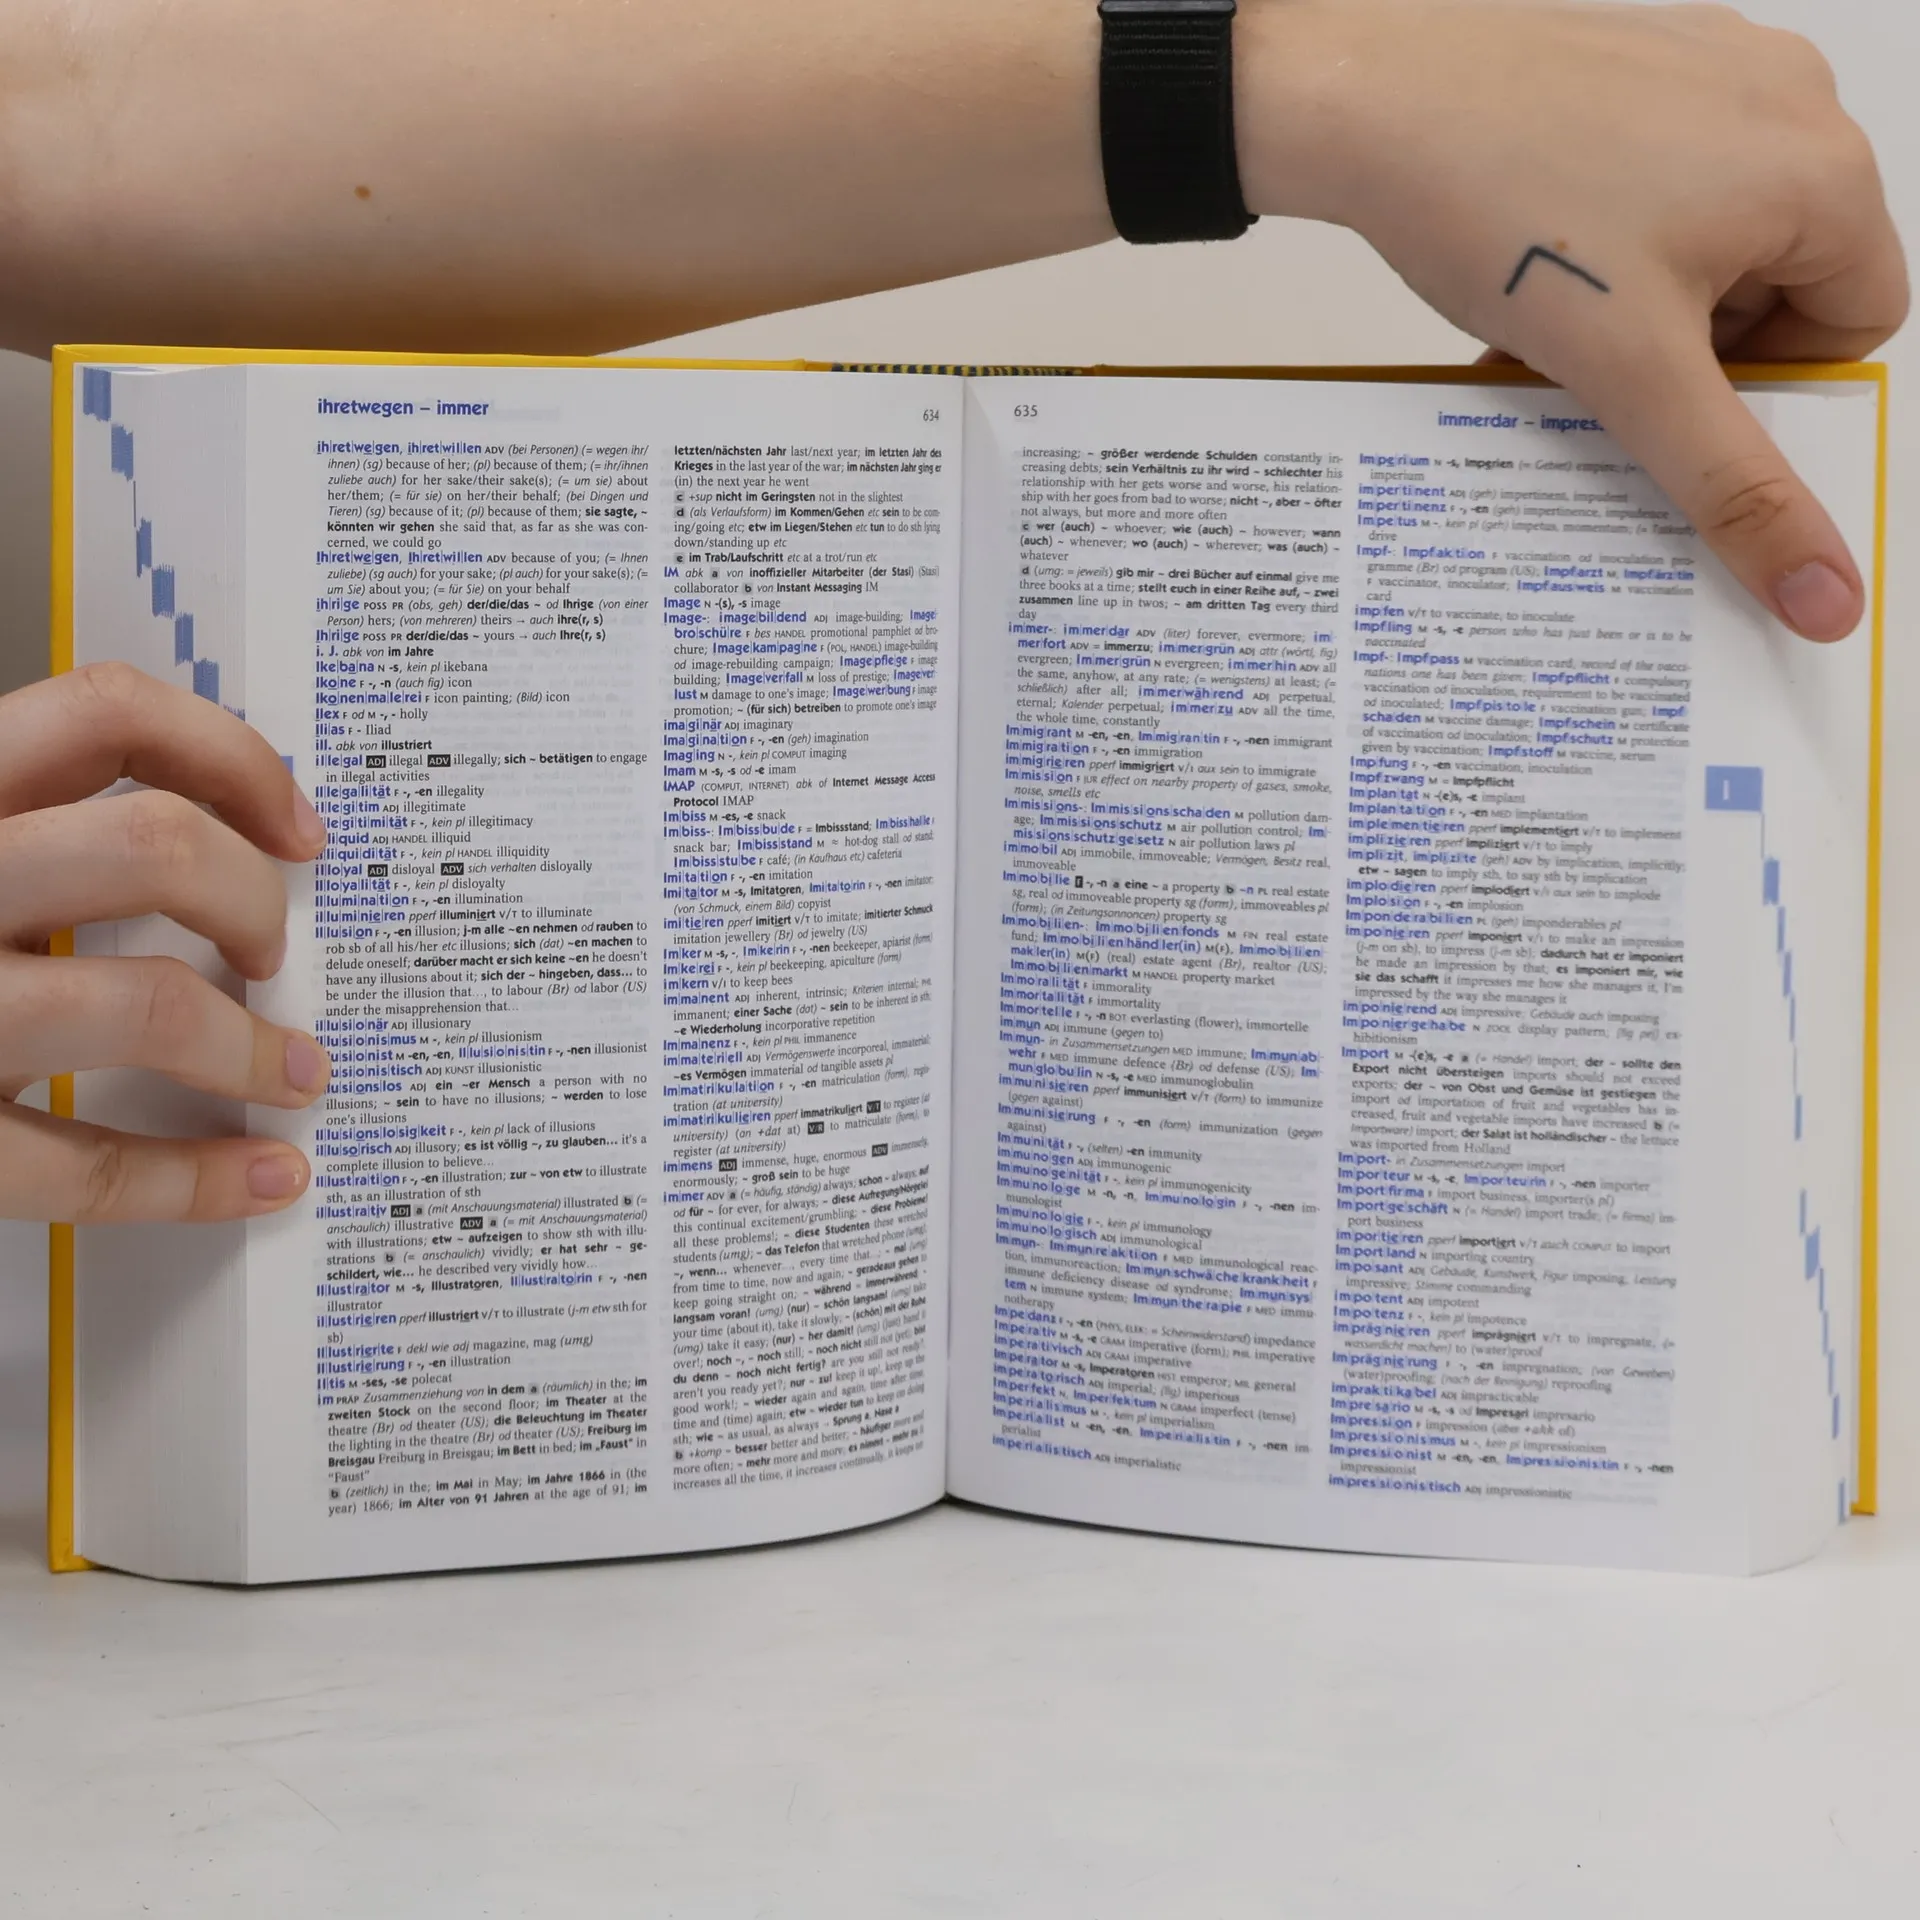 ihretwegen – immer
634
ih|ret|we|gen, ih|ret|wil|len ADV (bei Personen) (= wegen ihr/
ihnen) (sg) because of her; (pl) because of them; (= ihr/ihnen
zuliebe auch) for her sake/their sake(s); (= um sie) about
her/them; (= für sie) on her/their behalf; (bei Dingen und
Tieren) (sg) because of it; (pl) because of them; sie sagte, ~
könnten wir gehen she said that, as far as she was con-
cerned, we could go
Ih|ret|we|gen, Ih|ret|wil|len ADV because of you; (= Ihnen
zuliebe) (sg auch) for your sake; (pl auch) for your sake(s); (=
um Sie) about you; (= für Sie) on your behalf
ih|ri|ge POSS PR (obs, geh) der/die/das ~ od Ihrige (von einer
Person) hers; (von mehreren) theirs → auch ihre(r, s)
Ih|ri|ge POSS PR der/die/das ~ yours → auch Ihre(r, s)
i. J. abk von im Jahre
Ike|ba|na N -s, kein pl ikebana
Iko|ne F -, -n (auch fig) icon
Iko|nen|ma|le|rei F icon painting; (Bild) icon
Ilex F od M -, - holly
Ili|as F - Iliad
ill. abk von illustriert
il|le|gal ADJ illegal ADV illegally; sich ~ betätigen to engage
in illegal activities
Il|le|ga|li|tät F -, -en illegality
il|le|gi|tim ADJ illegitimate
le|gi|ti|mi|tät F -, kein pl illegitimacy
li|quid ADJ HANDEL illiquid
li|qui|di|tät F -, kein pl HANDEL illiquidity
il|lo|yal ADJ disloyal ADV sich verhalten disloyally
Il|lo|ya|li|tät F -, kein pl disloyalty
Il|lu|mi|na|ti|on F -, -en illumination
il|lu|mi|nie|ren pperf illuminiert V/T to illuminate
Il|lu|si|on F -, -en illusion; j-m alle ~en nehmen od rauben to
rob sb of all his/her etc illusions; sich (dat) ~en machen to
delude oneself; darüber macht er sich keine ~en he doesn't
have any illusions about it; sich der ~ hingeben, dass… to
be under the illusion that…, to labour (Br) od labor (US)
under the misapprehension that…
il|lu|si|o|när ADJ illusionary
Il|lu|si|o|nis|mus M -, kein pl illusionism
lu|si|o|nist M -en, -en, Il|lu|si|o|nis|tin F -, -nen illusionist
lu|si|o|nis|tisch ADJ KUNST illusionistic
lu|si|ons|los ADJ ein ~er Mensch a person with no
illusions; ~ sein to have no illusions; ~ werden to lose
one's illusions
Il|lu|si|ons|lo|sig|keit F -, kein pl lack of illusions
il|lu|so|risch ADJ illusory; es ist völlig ~, zu glauben… it's a
complete illusion to believe…
Il|lus|tra|ti|on F -, -en illustration; zur ~ von etw to illustrate
sth, as an illustration of sth
il|lus|tra|tiv ADJ a (mit Anschauungsmaterial) illustrated b (=
anschaulich) illustrative ADV a (= mit Anschauungsmaterial)
with illustrations; etw ~ aufzeigen to show sth with illu-
strations b (= anschaulich) vividly; er hat sehr ~ ge-
schildert, wie… he described very vividly how…
Il|lus|tra|tor M -s, Illustratoren, Il|lus|tra|to|rin F -, -nen
illustrator
il|lus|trie|ren pperf illustriert V/T to illustrate (j-m etw sth for
sb)
Il|lus|trier|te F dekl wie adj magazine, mag (umg)
Il|lus|trie|rung F -, -en illustration
Il|tis M -ses, -se polecat
im PRÄP Zusammenziehung von in dem a (räumlich) in the; im
zweiten Stock on the second floor; im Theater at the
theatre (Br) od theater (US); die Beleuchtung im Theater
the lighting in the theatre (Br) od theater (US); Freiburg im
Breisgau Freiburg in Breisgau; im Bett in bed; im „Faust" in
"Faust"
b (zeitlich) in the; im Mai in May; im Jahre 1866 in (the
year) 1866; im Alter von 91 Jahren at the age of 91; im
letzten/nächsten Jahr last/next year; im letzten Jahr des
Krieges in the last year of the war; im nächsten Jahr ging er
(in) the next year he went
c +sup nicht im Geringsten not in the slightest
d (als Verlaufsform) im Kommen/Gehen etc sein to be com-
ing/going etc; etw im Liegen/Stehen etc tun to do sth lying
down/standing up etc
e im Trab/Laufschritt etc at a trot/run etc
IM abk a von inoffizieller Mitarbeiter (der Stasi) (Stasi)
collaborator b von Instant Messaging IM
Image N -(s), -s image
Image-: image|bil|dend ADJ image-building; Image|
bro|schü|re F bes HANDEL promotional pamphlet od bro-
chure; Image|kam|pa|gne F (POL, HANDEL) image-building
od image-rebuilding campaign; Image|pfle|ge F image
building; Image|ver|fall M loss of prestige; Image|ver|
lust M damage to one's image; Image|wer|bung F image
promotion; ~ (für sich) betreiben to promote one's image
ima|gi|när ADJ imaginary
Ima|gi|na|ti|on F -, -en (geh) imagination
Ima|ging N -, kein pl COMPUT imaging
Imam M -s, -s od -e imam
IMAP (COMPUT, INTERNET) abk of Internet Message Access
Protocol IMAP
Im|biss M -es, -e snack
Im|biss-: Im|biss|bu|de F = Imbissstand; Im|biss|hal|le F
snack bar; Im|biss|stand M ≈ hot-dog stall od stand;
Im|biss|stu|be F café; (in Kaufhaus etc) cafeteria
Imi|ta|ti|on F -, -en imitation
Imi|ta|tor M -s, Imitatoren, Imi|ta|to|rin F -, -nen imitator;
(von Schmuck, einem Bild) copyist
imi|tie|ren pperf imitiert V/T to imitate; imitierter Schmuck
imitation jewellery (Br) od jewelry (US)
Im|ker M -s, -, Im|ke|rin F -, -nen beekeeper, apiarist (form)
Im|ke|rei F -, kein pl beekeeping, apiculture (form)
im|kern V/I to keep bees
im|ma|nent ADJ inherent, intrinsic; Kriterien internal; PHIL
immanent; einer Sache (dat) ~ sein to be inherent in sth;
~e Wiederholung incorporative repetition
Im|ma|nenz F -, kein pl PHIL immanence
im|ma|te|ri|ell ADJ Vermögenswerte incorporeal, immaterial;
~es Vermögen immaterial od tangible assets pl
Im|ma|tri|ku|la|ti|on F -, -en matriculation (form), regis-
tration (at university)
im|ma|tri|ku|lie|ren pperf immatrikuliert V/T to register (at
university) (an +dat at) V/R to matriculate (form), to
register (at university)
im|mens ADJ immense, huge, enormous ADV immensely,
enormously; ~ groß sein to be huge
im|mer ADV a (= häufig, ständig) always; schon ~ always; auf
od für ~ for ever, for always; ~ diese Aufregung/Nörgelei
this continual excitement/grumbling; ~ diese Probleme!
all these problems!; ~ diese Studenten these wretched
students (umg); ~ das Telefon that wretched phone (umg);
~, wenn… whenever…, every time that…; ~ mal (umg)
from time to time, now and again; ~ geradeaus gehen to
keep going straight on; ~ während = immerwährend ~
langsam voran! (umg) (nur) ~ schön langsam! (umg) take
your time (about it), take it slowly; ~ (schön) mit der Ruhe
(umg) take it easy; (nur) ~ her damit! (umg) (just) hand it
over!; noch ~, ~ noch still; ~ noch nicht still not (yet); bist
du denn ~ noch nicht fertig? are you still not ready?,
aren't you ready yet?; nur ~ zu! keep it up!, keep up the
good work!; ~ wieder again and again, time after time,
time and (time) again; etw ~ wieder tun to keep on doing
sth; wie ~ as usual, as always
b +komp ~ besser better and better; ~ häufiger more and
more often; ~ mehr more and more; es nimmt ~ mehr zu it
increases all the time, it increases continually, it keeps on
635
immerdar – impres.
increasing; ~ größer werdende Schulden constantly in-
creasing debts; sein Verhältnis zu ihr wird ~ schlechter his
relationship with her gets worse and worse, his relation-
ship with her goes from bad to worse; nicht ~, aber ~ öfter
not always, but more and more often
c wer (auch) ~ whoever; wie (auch) ~ however; wann
(auch) ~ whenever; wo (auch) ~ wherever; was (auch) ~
whatever
d (umg: = jeweils) gib mir ~ drei Bücher auf einmal give me
three books at a time; stellt euch in einer Reihe auf, ~ zwei
zusammen line up in twos; ~ am dritten Tag every third
day
im|mer-: im|mer|dar ADV (liter) forever, evermore; im|
mer|fort ADV = immerzu; im|mer|grün ADJ attr (wörtl, fig)
evergreen; Im|mer|grün N evergreen; im|mer|hin ADV all
the same, anyhow, at any rate; (= wenigstens) at least; (=
schließlich) after all; im|mer|wäh|rend ADJ perpetual,
eternal; Kalender perpetual; im|mer|zu ADV all the time,
the whole time, constantly
Im|mig|rant M -en, -en, Im|mig|ran|tin F -, -nen immigrant
Im|mig|ra|ti|on F -, -en immigration
im|mig|rie|ren pperf immigriert V/I aux sein to immigrate
Im|mis|si|on F JUR effect on nearby property of gases, smoke,
noise, smells etc
Im|mis|si|ons-: Im|mis|si|ons|scha|den M pollution dam-
age; Im|mis|si|ons|schutz M air pollution control; Im|
mis|si|ons|schutz|ge|setz N air pollution laws pl
im|mo|bil ADJ immobile, immoveable; Vermögen, Besitz real,
immoveable
Im|mo|bi|lie F -, -n a eine ~ a property b ~n PL real estate
sg, real od immoveable property sg (form), immoveables pl
(form); (in Zeitungsannoncen) property sg
Im|mo|bi|li|en-: Im|mo|bi|li|en|fonds M FIN real estate
fund; Im|mo|bi|li|en|händ|ler(in) M(F), Im|mo|bi|li|en|
mak|ler(in) M(F) (real) estate agent (Br), realtor (US);
Im|mo|bi|li|en|markt M HANDEL property market
Im|mo|ra|li|tät F immorality
Im|mor|ta|li|tät F immortality
Im|mor|tel|le F -, -n BOT everlasting (flower), immortelle
im|mun ADJ immune (gegen to)
Im|mun- in Zusammensetzungen MED immune; Im|mun|ab|
wehr F MED immune defence (Br) od defense (US); Im|
mun|glo|bu|lin N -s, -e MED immunoglobulin
im|mu|ni|sie|ren pperf immunisiert V/T (form) to immunize
(gegen against)
Im|mu|ni|sie|rung F -, -en (form) immunization (gegen
against)
Im|mu|ni|tät F -, (selten) -en immunity
im|mu|no|gen ADJ immunogenic
Im|mu|no|ge|ni|tät F -, kein pl immunogenicity
Im|mu|no|lo|ge M -n, -n, Im|mu|no|lo|gin F -, -nen im-
munologist
Im|mu|no|lo|gie F -, kein pl immunology
im|mu|no|lo|gisch ADJ immunological
Im|mun-: Im|mun|re|ak|ti|on F MED immunological reac-
tion, immunoreaction; Im|mun|schwä|che|krank|heit F
immune deficiency disease od syndrome; Im|mun|sys|
tem N immune system; Im|mun|the|ra|pie F MED immu-
notherapy
Im|pe|danz F -, -en (PHYS, ELEK: = Scheinwiderstand) impedance
Im|pe|ra|tiv M -s, -e GRAM imperative (form); PHIL imperative
im|pe|ra|ti|visch ADJ GRAM imperative
Im|pe|ra|tor M -s, Imperatoren HIST emperor; MIL general
im|pe|ra|to|risch ADJ imperial; (fig) imperious
Im|per|fekt N, Im|per|fek|tum N GRAM imperfect (tense)
Im|pe|ri|a|lis|mus M -, kein pl imperialism
Im|pe|ri|a|list M -en, -en, Im|pe|ri|a|lis|tin F -, -nen im-
perialist
im|pe|ri|a|lis|tisch ADJ imperialistic
Im|pe|ri|um N -s, Imperien (= Gebiet) empire; (=
imperium
im|per|ti|nent ADJ (geh) impertinent, impudent
Im|per|ti|nenz F -, -en (geh) impertinence, impudence
Im|pe|tus M -, kein pl (geh) impetus, momentum; (= Tatkraft)
drive
Impf-: Impf|ak|ti|on F vaccination od inoculation pro-
gramme (Br) od program (US); Impf|arzt M, Impf|ärz|tin
F vaccinator, inoculator; Impf|aus|weis M vaccination
card
imp|fen V/T to vaccinate, to inoculate
Impf|ling M -s, -e person who has just been or is to be
vaccinated
Impf-: Impf|pass M vaccination card, record of the vacci-
nations one has been given; Impf|pflicht F compulsory
vaccination od inoculation, requirement to be vaccinated
od inoculated; Impf|pis|to|le F vaccination gun; Impf|
scha|den M vaccine damage; Impf|schein M certificate
of vaccination od inoculation; Impf|schutz M protection
given by vaccination; Impf|stoff M vaccine, serum
Imp|fung F -, -en vaccination, inoculation
Impf|zwang M = Impfpflicht
Im|plan|tat N -(e)s, -e implant
Im|plan|ta|ti|on F -, -en MED implantation
im|ple|men|tie|ren pperf implementiert V/T to implement
im|pli|zie|ren pperf impliziert V/T to imply
im|pli|zit, im|pli|zi|te (geh) ADV by implication, implicitly;
etw ~ sagen to imply sth, to say sth by implication
im|plo|die|ren pperf implodiert V/I aux sein to implode
Im|plo|si|on F -, -en implosion
Im|pon|de|ra|bi|li|en PL (geh) imponderables pl
im|po|nie|ren pperf imponiert V/I to make an impression
(j-m on sb), to impress (j-m sb); dadurch hat er imponiert
he made an impression by that; es imponiert mir, wie
sie das schafft it impresses me how she manages it, I'm
impressed by the way she manages it
im|po|nie|rend ADJ impressive; Gebäude auch imposing
Im|po|nier|ge|ha|be N ZOOL display pattern; (fig pej) ex-
hibitionism
Im|port M -(e)s, -e a (= Handel) import; der ~ sollte den
Export nicht übersteigen imports should not exceed
exports; der ~ von Obst und Gemüse ist gestiegen the
import od importation of fruit and vegetables has in-
creased, fruit and vegetable imports have increased b (=
Importware) import; der Salat ist holländischer ~ the lettuce
was imported from Holland
Im|port- in Zusammensetzungen import
Im|por|teur M -s, -e, Im|por|teu|rin F -, -nen importer
Im|port|fir|ma F import business, importer(s pl)
Im|port|ge|schäft N (= Handel) import trade; (= Firma) im-
port business
im|por|tie|ren pperf importiert V/T auch COMPUT to import
Im|port|land N importing country
im|po|sant ADJ Gebäude, Kunstwerk, Figur imposing; Leistung
impressive; Stimme commanding
im|po|tent ADJ impotent
Im|po|tenz F -, kein pl impotence
im|präg|nie|ren pperf imprägniert V/T to impregnate, (=
wasserdicht machen) to (water)proof
Im|präg|nie|rung F -, -en impregnation; (von Geweben)
(water)proofing; (nach der Reinigung) reproofing
im|prak|ti|ka|bel ADJ impracticable
Im|pre|sa|rio M -s, -s od Impresari impresario
Im|pres|si|on F impression (über +akk of)
Im|pres|si|o|nis|mus M -, kein pl impressionism
Im|pres|si|o|nist M -en, -en, Im|pres|si|o|nis|tin F -, -nen
impressionist
im|pres|si|o|nis|tisch ADJ impressionistic
I